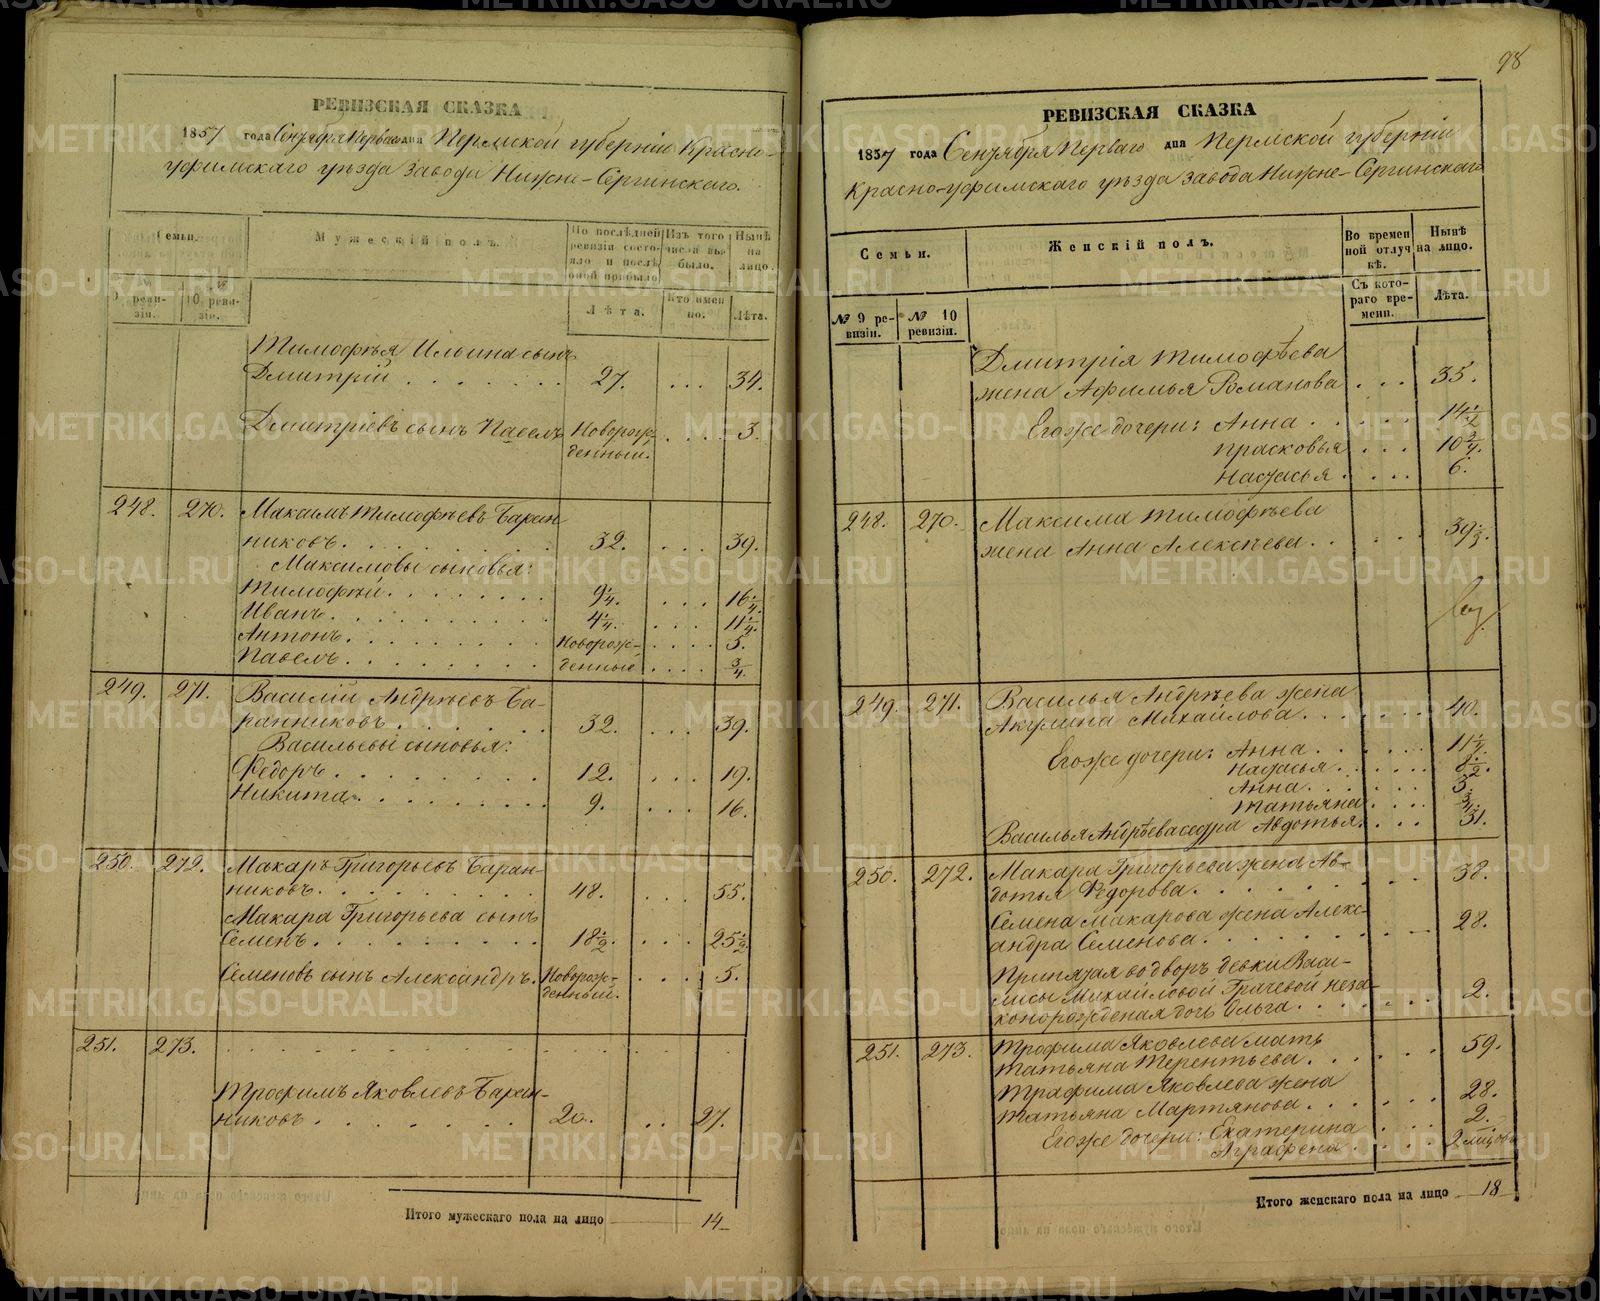 РЕВИЗСКАЯ СКАЗКА
1857 года Сентября Перваго дня Пермской губерніи Красно-
уфимскаго уѣзда завода Нижне-Сергинскаго.
Семьи.
Мужескій полъ.
По послѣдней ревизіи состояло и послѣ оной прибыло
Изъ того числа выбыло.
Нынѣ на лицо.
9 ревизіи.
№ 10 ревизіи.
Лѣта.
Кто именно.
Лѣта.
Тимофѣя Ильина сынъ
Дмитрій . . . . . . . 27. . . . 34.
Дмитріевъ сынъ Павелъ Новорож-
денный. . . . . 3.
248. 270. Максимъ Тимофѣевъ Баран-
никовъ. . . . . . . . 32. . . . 39.
Максимовы сыновья:
Тимофѣй. . . . . . . . 9 1/4. . . . 16 1/4.
Иванъ. . . . . . . . . 4 1/4. . . . 11 1/4.
Антонъ. . . . . . . . Новорож- . . . . 5.
Павелъ. . . . . . . . денные . . . . 3/4.
249. 271. Василій Андрѣевъ Ба-
ранниковъ. . . . . . 32. . . . 39.
Васильевы сыновья:
Федоръ. . . . . . . . 12. . . . 19.
Никита. . . . . . . . 9. . . . 16.
250. 272. Макаръ Григорьевъ Баран-
никовъ. . . . . . . . 48. . . . 55.
Макара Григорьева сынъ
Семенъ. . . . . . . . 18 1/2. . . . 25 1/2.
Семеновъ сынъ Александръ. Новорож- . . . . 5.
денный.
251. 273. . . . . . . . . . . . .
Трофимъ Яковлевъ Баран-
никовъ . . . . . . . 20. . . 27.
Итого мужескаго пола на лицо 14
98
РЕВИЗСКАЯ СКАЗКА
1857 года Сентября Перваго дня Пермской губерніи
Красно-уфимскаго уѣзда завода Нижне-Сергинскаго
Семьи.
Женскій полъ.
Во временной отлучкѣ.
Нынѣ на лицо.
№ 9 ревизіи.
№ 10 ревизіи.
Съ котораго времени.
Лѣта.
Дмитрія Тимофѣева
жена Афимья Романова . . . 35.
Его же дочери: Анна . . . . . . 14 1/2
Прасковья . . . 10 3/4.
Настасья . . . . 6.
248. 270. Максима Тимофѣева
жена Анна Алексѣева. . . . . . 39 1/3.
249. 271. Василья Андрѣева жена
Акулина Михайлова. . . . . . . 40.
Его же дочери: Анна . . . . . . 11 1/4.
Настасья . . . . . . 8 1/2.
Анна. . . . . . 3.
Татьяна . . . . 3/4.
Василья Андрѣева сестра Авдотья. . . . 31.
250. 272. Макара Григорьева жена Ав-
дотья Федорова. . . . . . . . 38.
Семена Макарова жена Алекс-
андра Семенова. . . . . . . . 28.
Принятая во дворъ девки Васи-
лисы Михайловой Грачевой неза-
конорожденая дочь Ольга. . . . . . . 2.
251. 273. Трофима Яковлева мать
Татьяна Терентьева. . . . . . 59.
Трафима Яковлева жена
Татьяна Мартянова. . . . . . 28.
Его же дочери: Екатерина . . . 2.
Аграфена . . . .
Итого женскаго пола на лицо 18